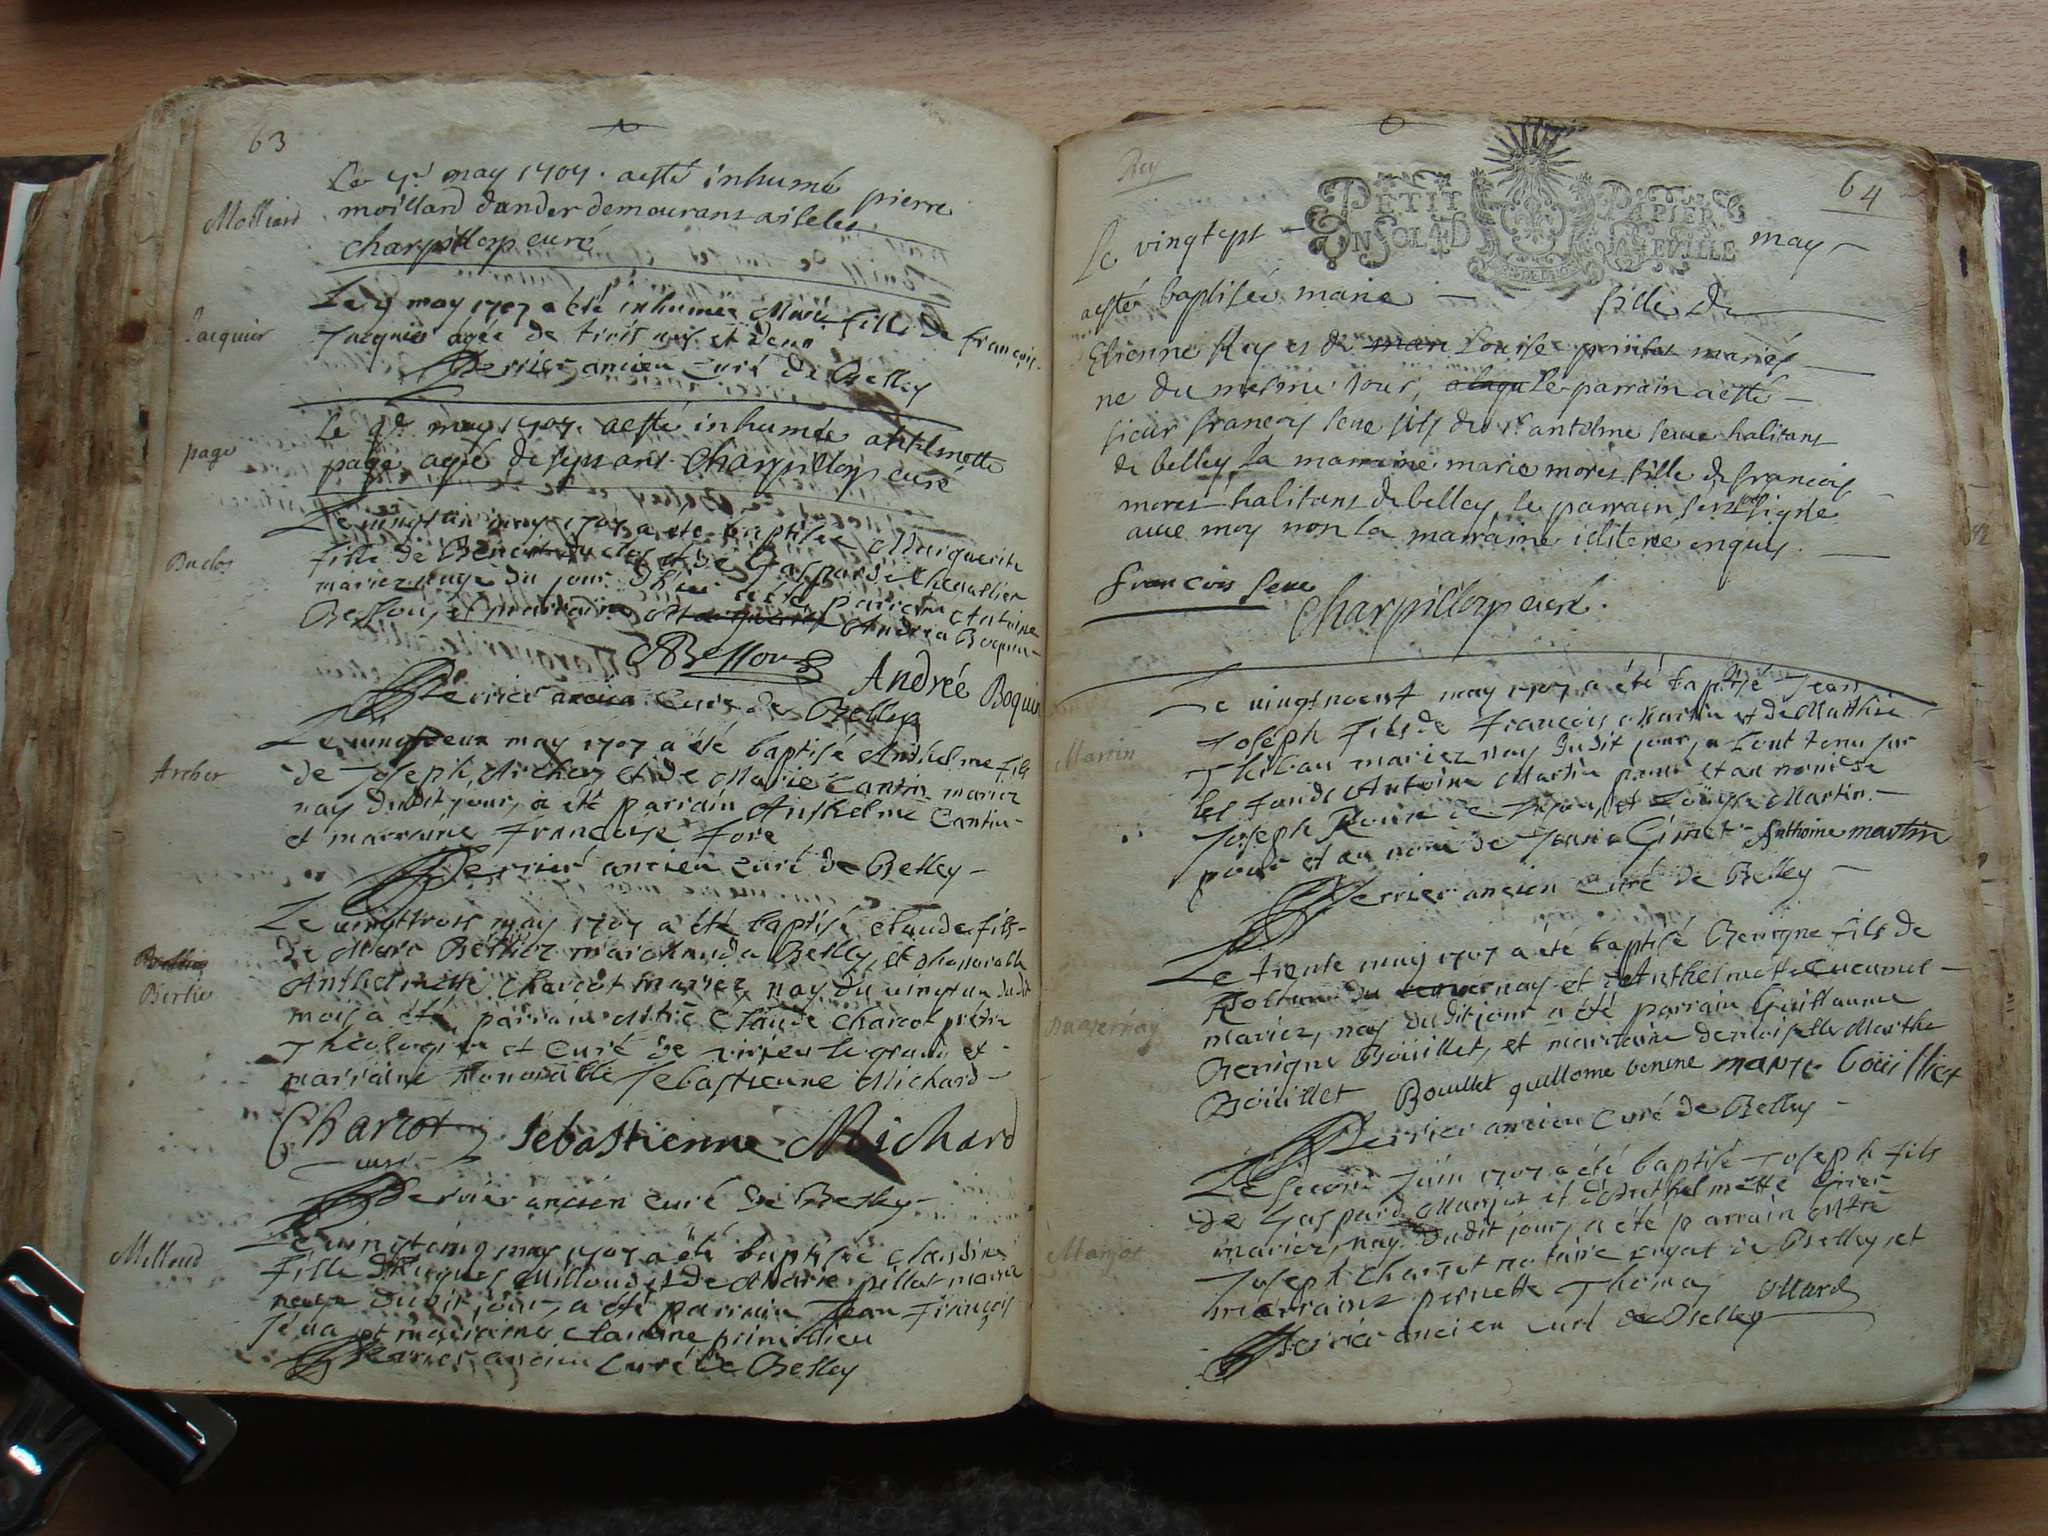 63
Molliard
Le may 1707. aesté inhumé pierre
moillard dander demourant
charpilloy curé
Jacquier
Le 9 may 1707 a été inhumée Marie fille de françois
Jacquier agée de trois ans et demi
Perrier ancien curé de Belley
page
Le may 1707. aesté inhumée anthelmette
page agée de sept ans Charpilloy curé
Duclos
Le vingtun may 1707 a été baptisée Marguerite
fille de Benoit duclos et de Gasparde Cheuallier
mariez du jour a été parrain Antoine
Bessou, et marraine Andrea Boquin
ABessou
Andreé Boquin
Perrier ancien Curé de Belley
Archer
Le vingtdeux may 1707 a été baptisé Anthelme fils
de Joseph Archer et de Marie Cantin mariez
nay dudit jour, a été parrain Anthelme Cantin
et marraine Françoise fore
Perrier ancien curé de Belley
Berlier
Le vingttrois may 1707 a été baptisé claude fils
de Marc Berlier marchand a Belley, et
Anthelmette Charcot mariez, nay du vingtun dudit
mois a été parrain Mtre Claude Charcot pretre
Theologien et Curé de virieu le grand et
marraine honorable Sebastienne Michard
Charcot
curé
Sebastienne Michard
Perrier ancien Curé de Belley
Milloud
Le vingtcinq may 1707 a été baptisée claudine
fille d'hugues Milloud et de Marie pillot mariez
dudit jour, a été parrain Jean François
et marraine claudine
Perrier ancien Curé de Belley
64
Rey
PETIT PAPIER
UN SOL 4 D LA FEVILLE
Le vingtept may
aesté baptisée marie fille de
Etienne Rey et de Louise mariés
ne du mesme jour, Le parrain aesté
sieur françois seue fils du sr antelme seue habitant
de belley La marraine marie mores fille de francois
mores habitant de belley, le parrain sest signé
auec moy non la marraine
françois seue
Charpilloy curé.
Martin
Le vingtneuf may 1707 a été baptisé Jean
Joseph fils de François Martin et de Matthie
Thibau mariez nay dudit jour, a tenu sur
les fonds Antoine Martin pour et au nom de
Joseph et Martin
pour et au nom de Anthoine martin
Perrier ancien Curé de Belley
Duuernay
Le trente may 1707 a été baptisé Benigne fils de
du nay et d'Anthelmette
mariez, nay dudit jour a été parrain Guillaume
Benigne Boüillet, et marraine demoiselle Marthe
Boüillet Bouillet guillome benine boüilliet
Perrier ancien Curé de Belley
Marjot
Le second Juin 1707 a été baptisé Joseph fils
de Gaspard Marjot et d'Anthelmette
mariez, nay dudit jour, a été parrain Mtre
Joseph Charcot notaire royal de Belley, et
marraine pernette Thomas
Perrier ancien curé de Belley